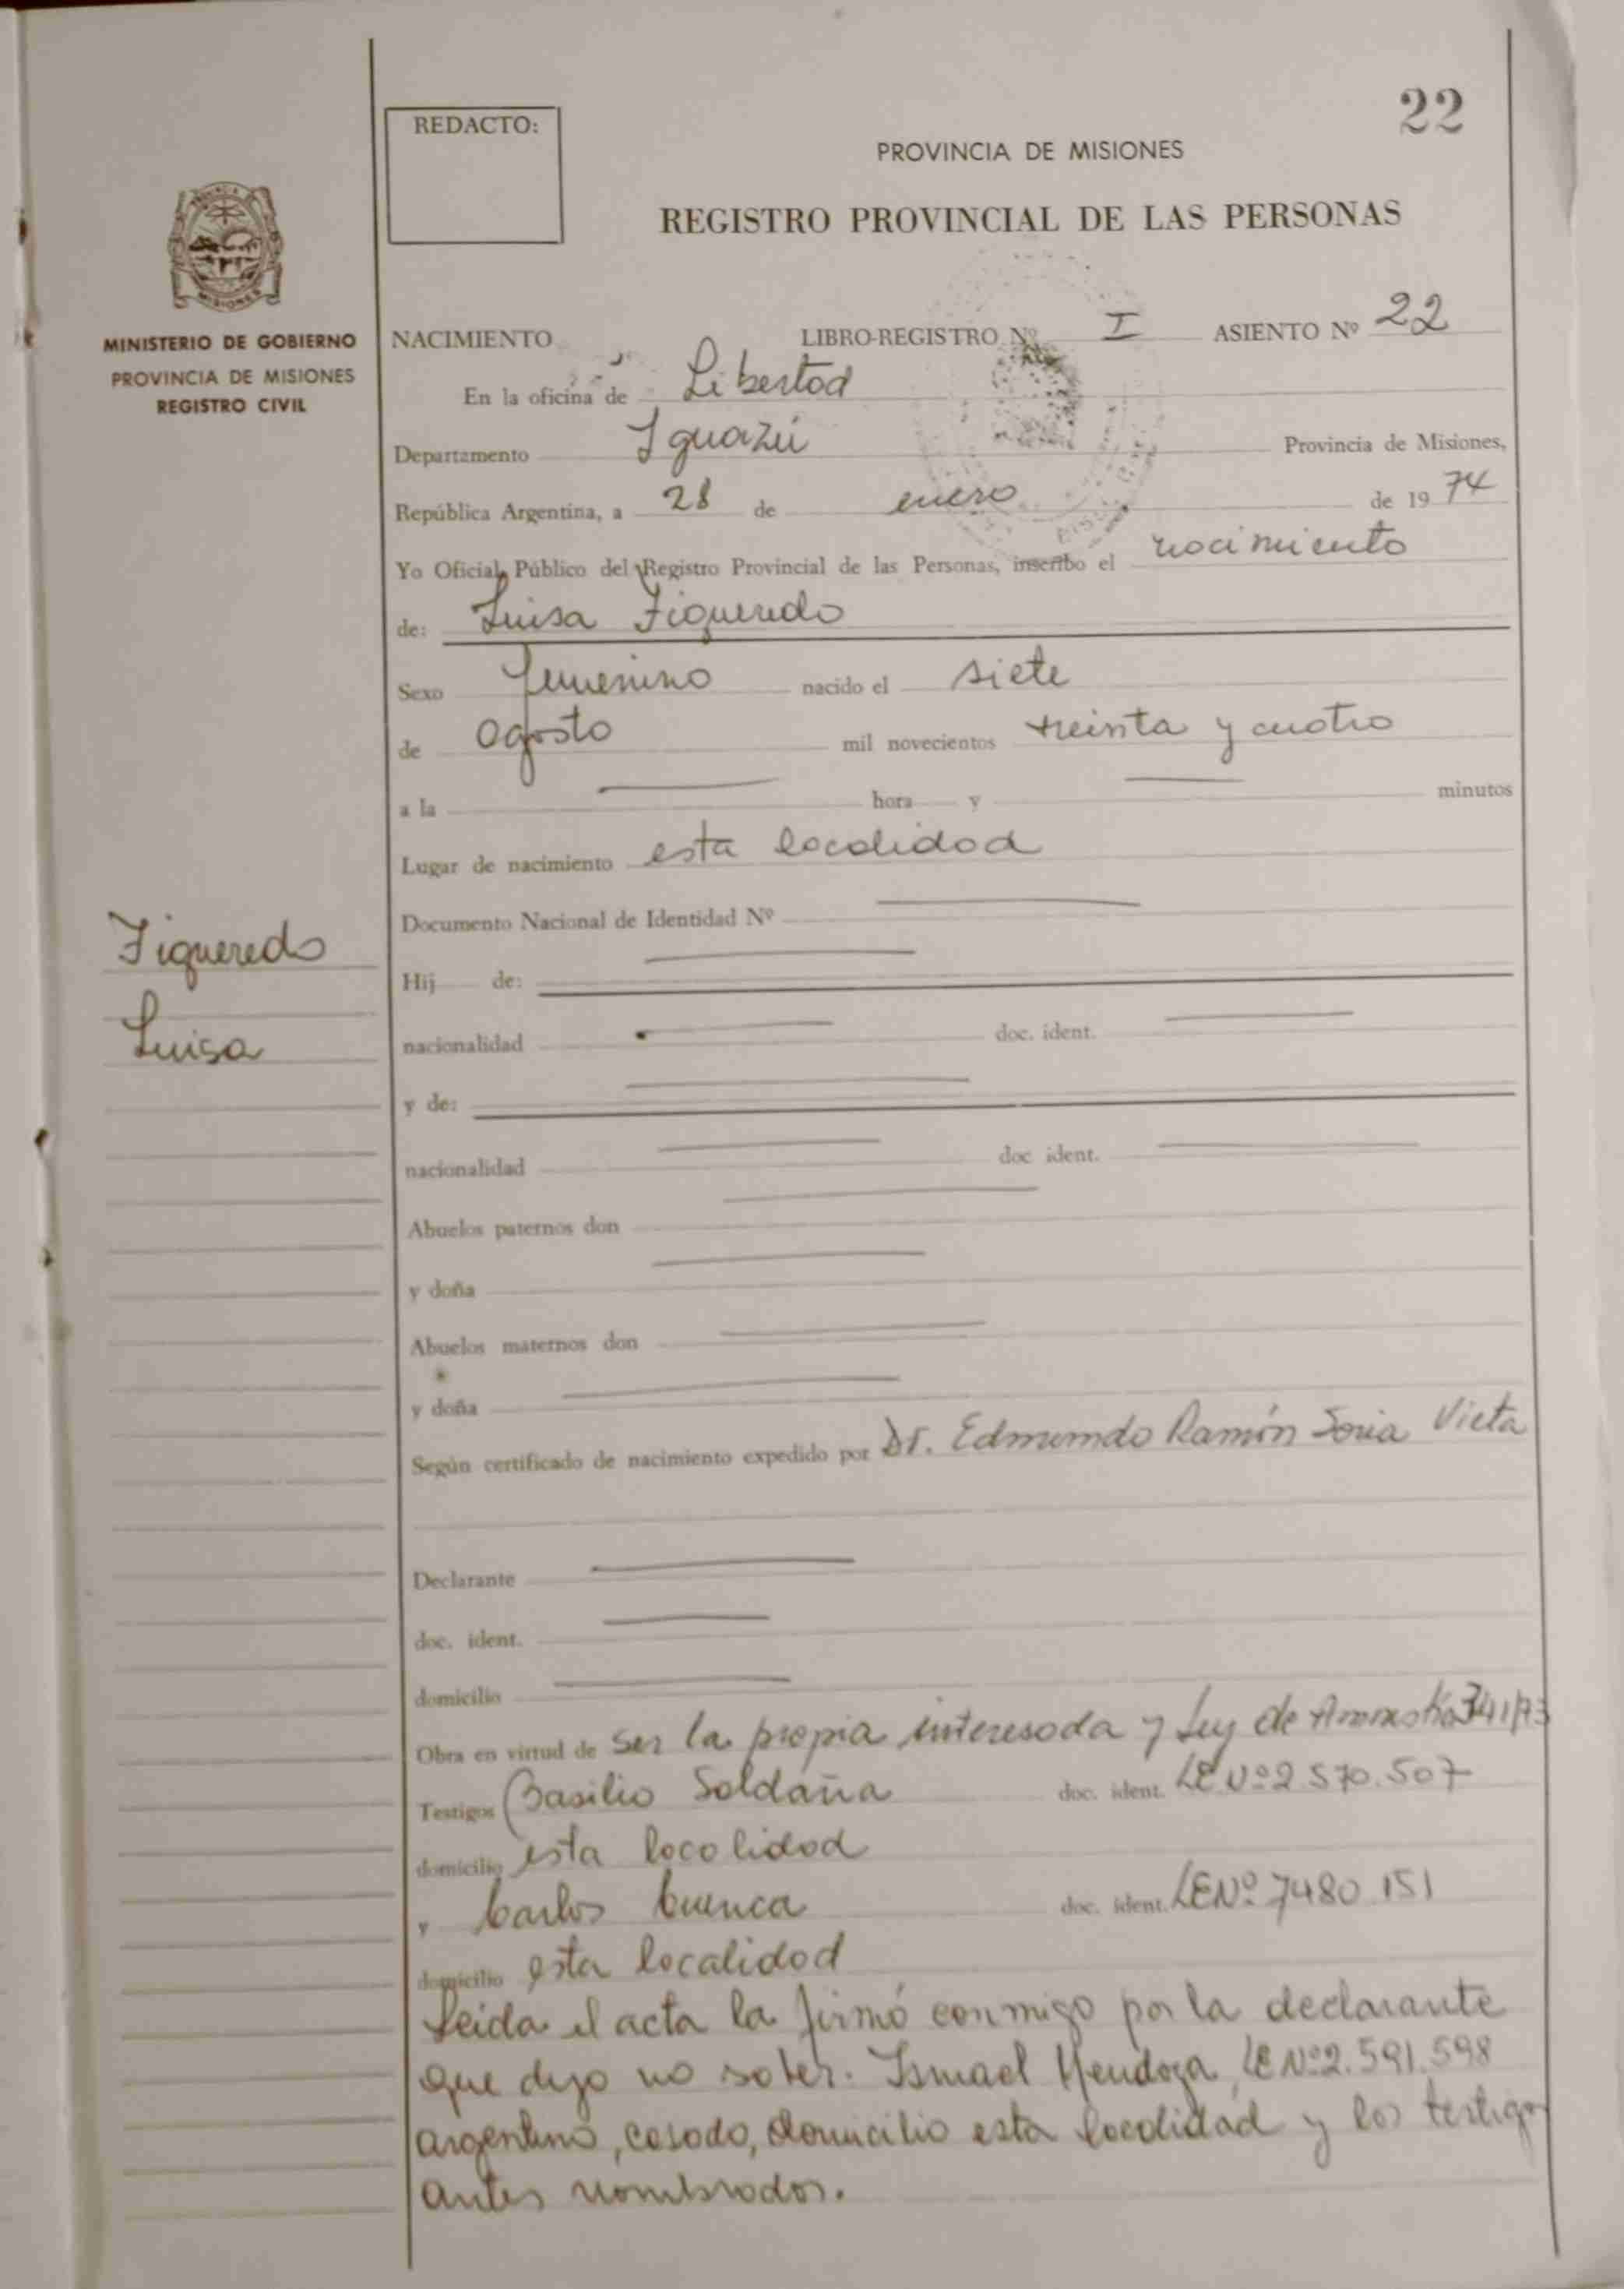 22
REDACTO:
PROVINCIA DE MISIONES
REGISTRO PROVINCIAL DE LAS PERSONAS
MINISTERIO DE GOBIERNO
PROVINCIA DE MISIONES
REGISTRO CIVIL
NACIMIENTO LIBRO-REGISTRO Nº I ASIENTO Nº 22
En la oficina de Libertad
Departamento Iguazú Provincia de Misiones,
República Argentina, a 28 de enero de 1974
Yo Oficial Público del Registro Provincial de las Personas, inscribo el nacimiento
de: Luisa Figueredo
Sexo femenino nacido el siete
de agosto mil novecientos treinta y cuatro
a la hora y minutos
Lugar de nacimiento esta localidad
Documento Nacional de Identidad Nº
Figueredo
Luisa
Hij de:
nacionalidad doc. ident.
y de:
nacionalidad doc ident.
Abuelos paternos don
y doña
Abuelos maternos don
y doña
Según certificado de nacimiento expedido por Dr. Edmundo Ramón Soria Vieta
Declarante
doc. ident.
domicilio
Obra en virtud de ser la propia interesada y Ley de Amnistia 341/73
Testigos Basilio Soldaña doc. ident. LE Nº 2.570.507
domicilio esta localidad
y Carlos Cuenca doc. ident. LE Nº 7480.151
domicilio esta localidad
Leida el acta la firmó conmigo por la declarante
que dijo no saber. Ismael Mendoza, LE Nº 2.591.598
argentino, casado, domicilio esta localidad y los testigos
antes nombrados.